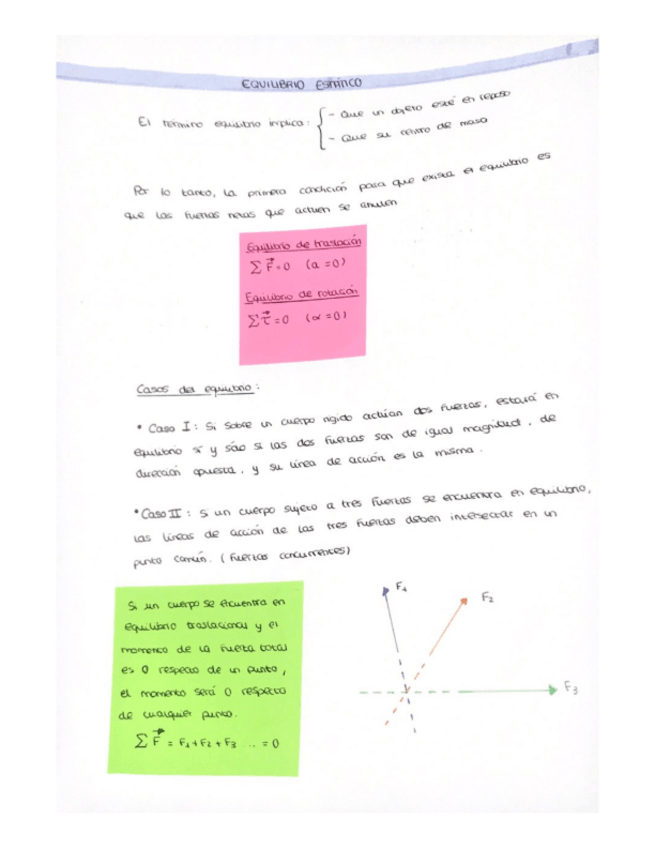 EQUILIBRIO ESTÁTICO
El término equilibrio implica:
- Que un objeto esté en reposo
- Que su centro de masa
Por lo tanto, la primera condición para que exista el equilibrio es
que las fuerzas netas que actúen se anulen
Equilibrio de traslación
∑F⃗=0 (a=0)
Equilibrio de rotación
∑τ⃗=0 (α=0)
Casos del equilibrio:
• Caso I: Si sobre un cuerpo rígido actúan dos fuerzas, estará en
equilibrio sí y sólo si las dos fuerzas son de igual magnitud, de
dirección opuesta, y su línea de acción es la misma.
• Caso II: Si un cuerpo sujeto a tres fuerzas se encuentra en equilibrio,
las líneas de acción de las tres fuerzas deben intersectar en un
punto común. (fuerzas concurrentes)
Si un cuerpo se encuentra en
equilibrio traslacional y el
momento de la fuerza total
es 0 respecto de un punto,
el momento será 0 respecto
de cualquier punto.
∑F⃗ = F1+F2+F3 ... = 0
F1
F2
F3